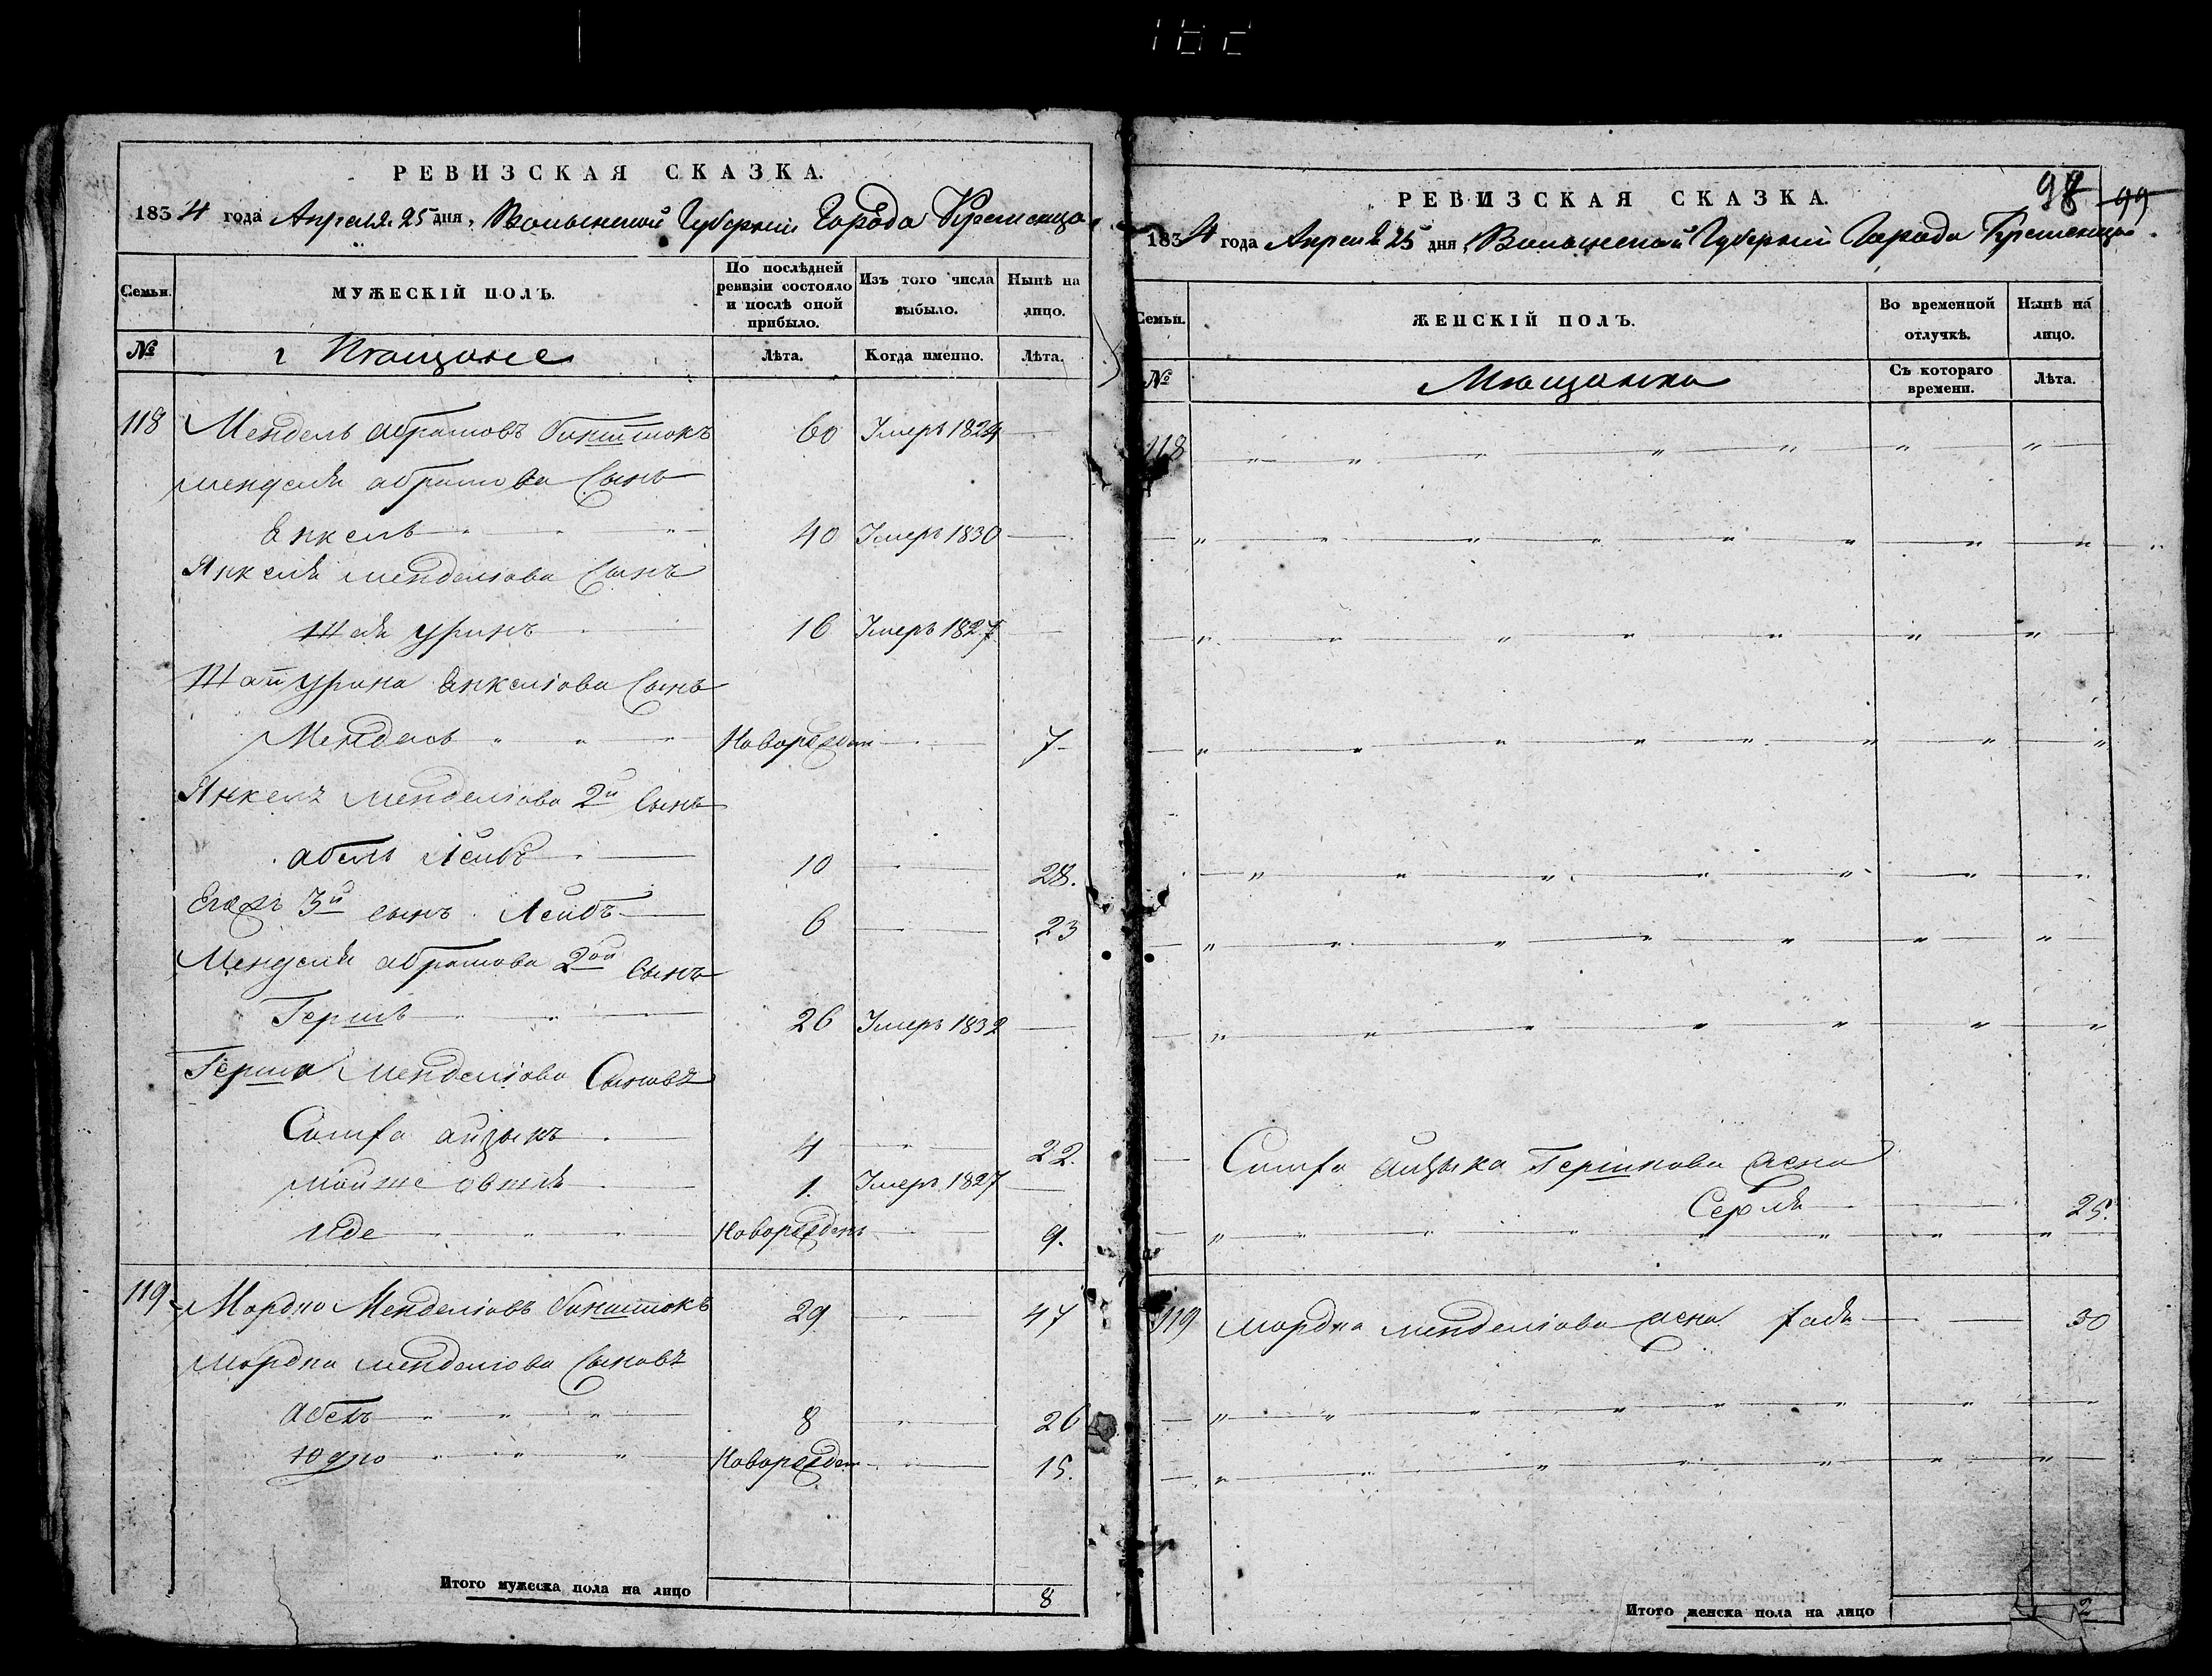 РЕВИЗСКАЯ СКАЗКА.
1834 года Апреля 25 дня, Волынской Губерніи Города Кременца
Семьи.
МУЖЕСКІЙ ПОЛЪ.
По послѣдней ревизіи состояло и послѣ оной прибыло.
Изъ того числа выбыло.
Нынѣ на лицо.
№
Мещане
Лѣта.
Когда именно.
Лѣта.
118 Мендель Абрамовъ 60 Умеръ 1824
Менделя Абрамова Сынъ
Енкель 40 Умеръ 1830
Янкеля Менделіова Сынъ
16 Умеръ 1827
Енкеліова Сынъ
Мендель Новорожден 7
Янкеля Менделіова 2й Сынъ
Абель Лейбъ 10 28.
3й сынъ Лейбъ 6 23
Менделя Абрамова 2ой Сынъ
Гершь 26 Умеръ 1832
Герша Менделіова Сыновъ
Симха Айзыкъ 4 22.
Мойше 1. Умеръ 1827
Новорожденъ 9.
119 Мордко Менделіовъ 29 47
Мордка Менделіова Сыновъ
Абель 8 26
Юдко Новорожден 15.
Итого мужеска пола на лицо 8
98 99
РЕВИЗСКАЯ СКАЗКА.
1834 года Апреля 25 дня, Волынской Губерніи Города Кременца
Семьи.
ЖЕНСКІЙ ПОЛЪ.
Во временной отлучкѣ.
Нынѣ на лицо.
№
Мещанки
Съ котораго времени.
Лѣта.
118
Симха Айзыка Гершкова жена
25.
119 Мордка Менделіова жена 30
Итого женска пола на лицо 2